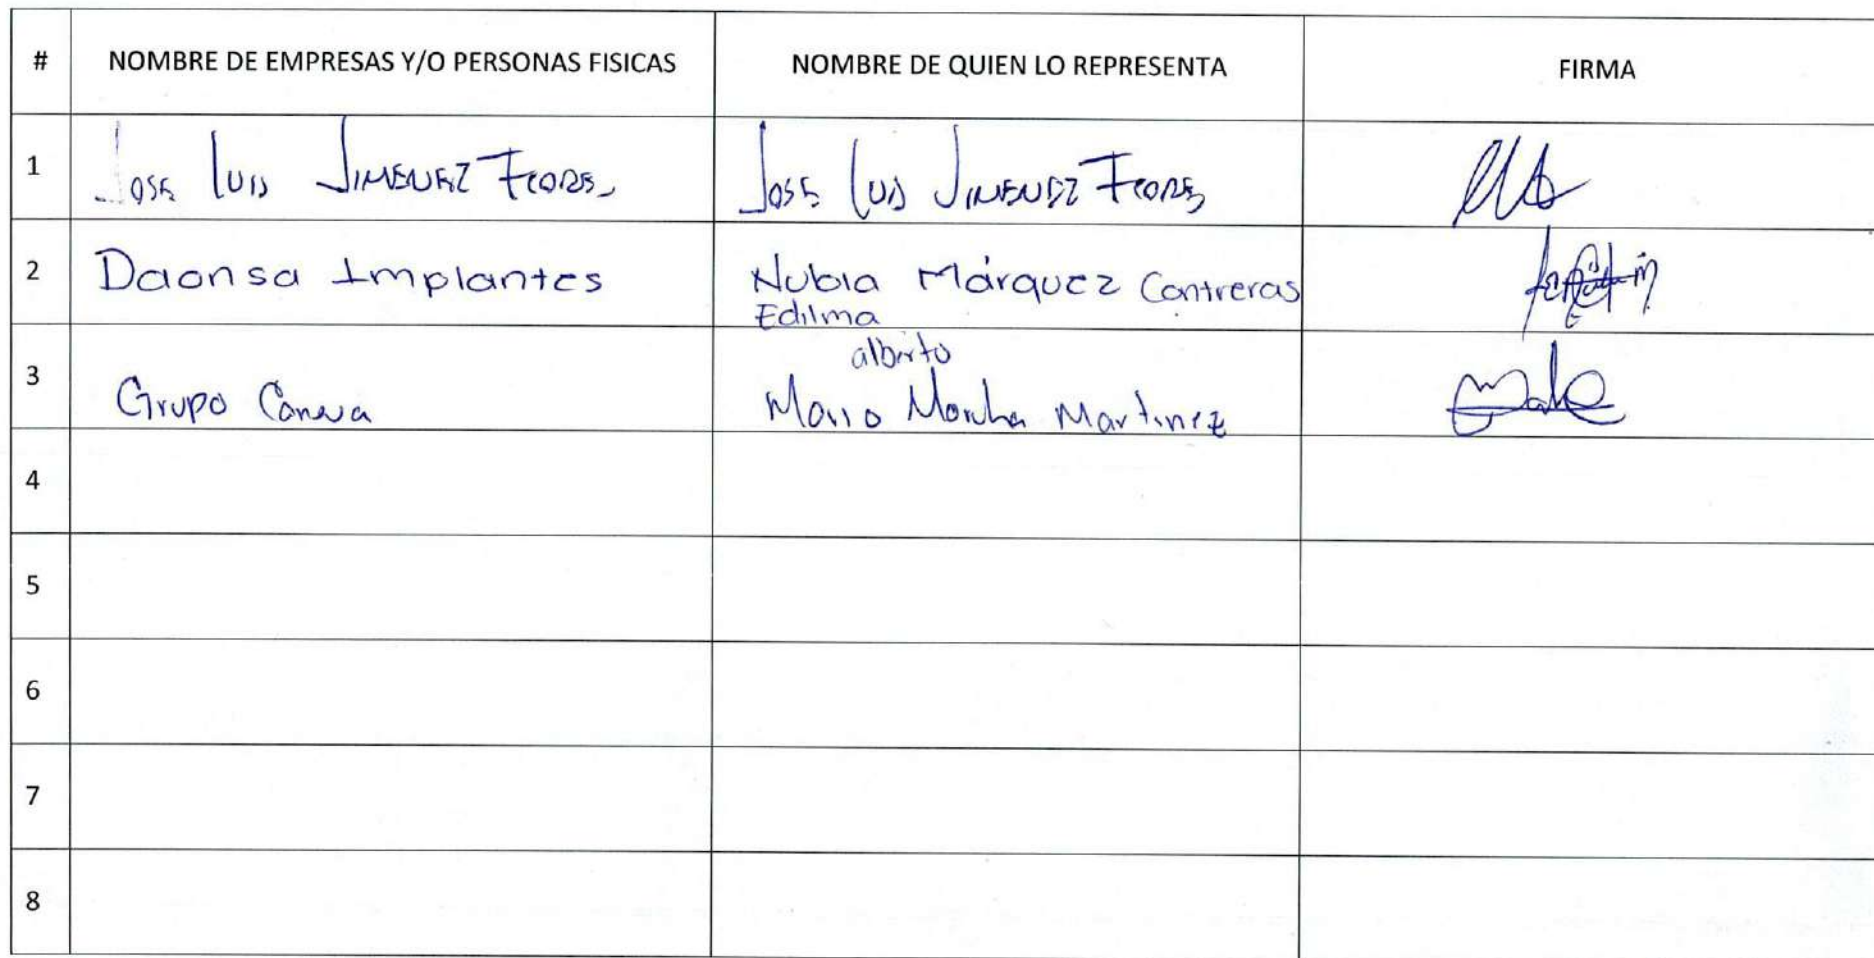 # NOMBRE DE EMPRESAS Y/O PERSONAS FISICAS NOMBRE DE QUIEN LO REPRESENTA FIRMA
1 Jose Luis JIMENEZ FLORES JOSE LUIS JIMENEZ FLORES
2 Daonsa Implantes Nubia Márquez Contreras
Edilma
alberto
3 Grupo Mario Martinez
4
5
6
7
8